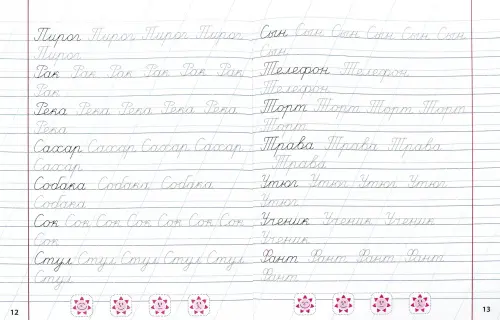 Пирог Пирог Пирог Пирог
Пирог
Рак Рак Рак Рак Рак Рак
Рак
Река Река Река Река Река
Река
Сахар Сахар Сахар Сахар
Сахар
Собака Собака Собака
Собака
Сок Сок Сок Сок Сок Сок Сок
Сок
Стул Стул Стул Стул Стул
Стул
12
Сын Сын Сын Сын Сын Сын
Сын
Телефон Телефон
Телефон
Торт Торт Торт Торт
Торт
Трава Трава Трава
Трава
Утюг Утюг Утюг Утюг
Утюг
Ученик Ученик Ученик
Ученик
Фант Фант Фант Фант
Фант
13